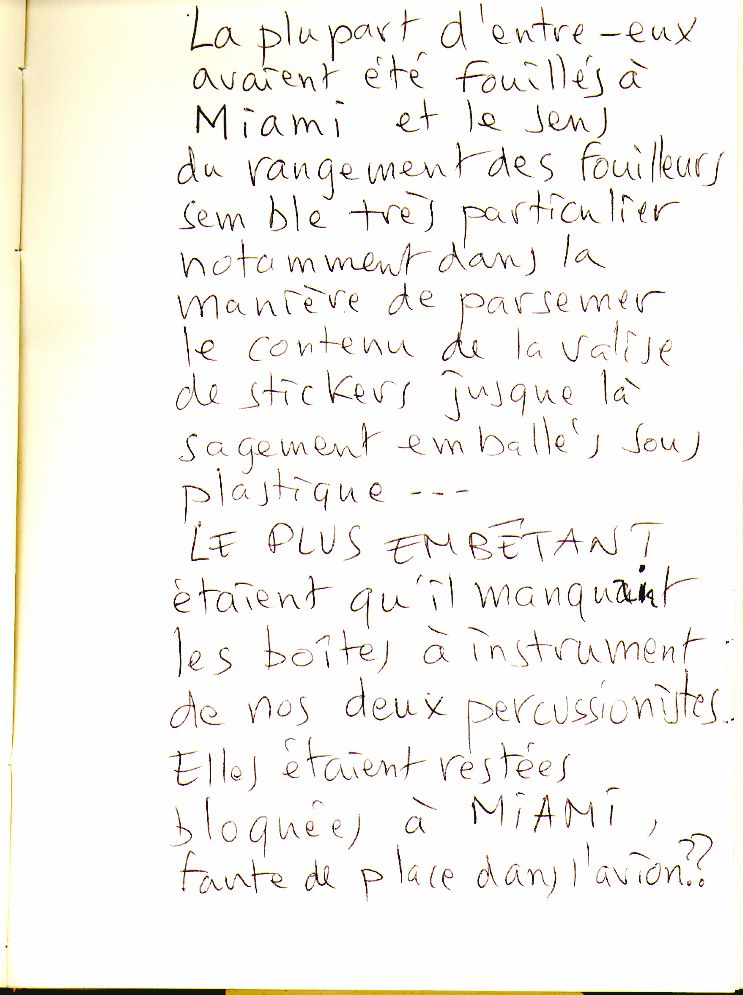 La plupart d'entre-eux
avaient été fouillés à
Miami et le sens
du rangement des fouilleurs
semble très particulier
notamment dans la
manière de parsemer
le contenu de la valise
de stickers jusque là
sagement emballés sous
plastique ---
LE PLUS EMBÊTANT
étaient qu'il manquait
les boîtes à instrument
de nos deux percussionistes..
Elles étaient restées
bloquées à MIAMI,
faute de place dans l'avion??